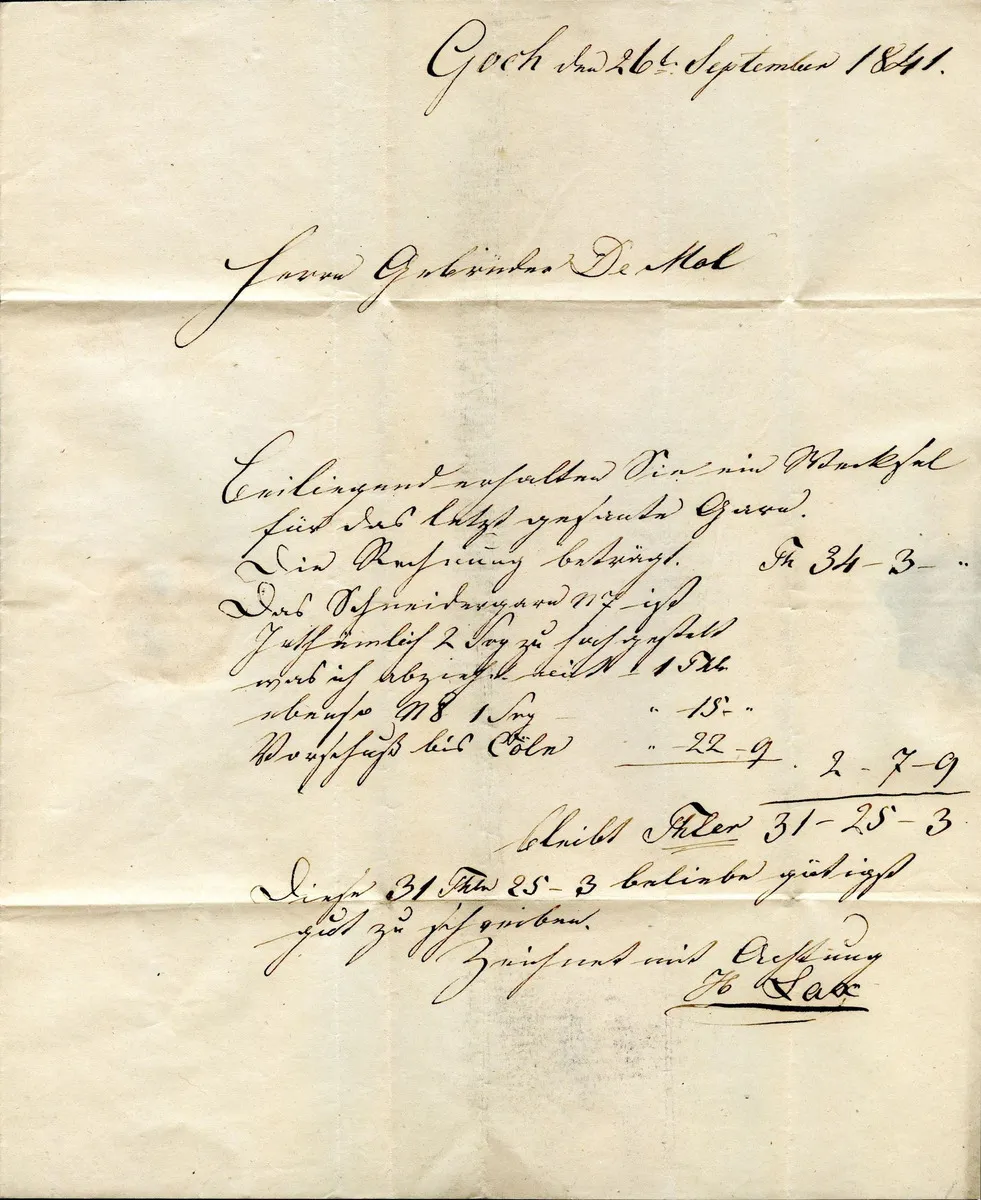 Goch den 26t September 1841.
Herrn Gebrüder De Mol
Beiliegend erhalten Sie ein Wecksel
für das letzt gesante Garn.
Die Rechnung beträgt. Th 34 – 3 – "
Das Schneidergarn N 7 ist
Irthümlich 2 Srg zu hoch gestelt
was ich abziehe mit – 1 Thlr
ebenso N 8 1 Srg – " – 15 – "
Vorschuß bis Cöln " – 22 – 9 . 2 – 7 – 9
bleibt Thler 31 – 25 – 3
Diese 31 Thlr 25 – 3 beliebe gütigst
gut zu schreiben.
Zeichnet mit Achtung
H Lax